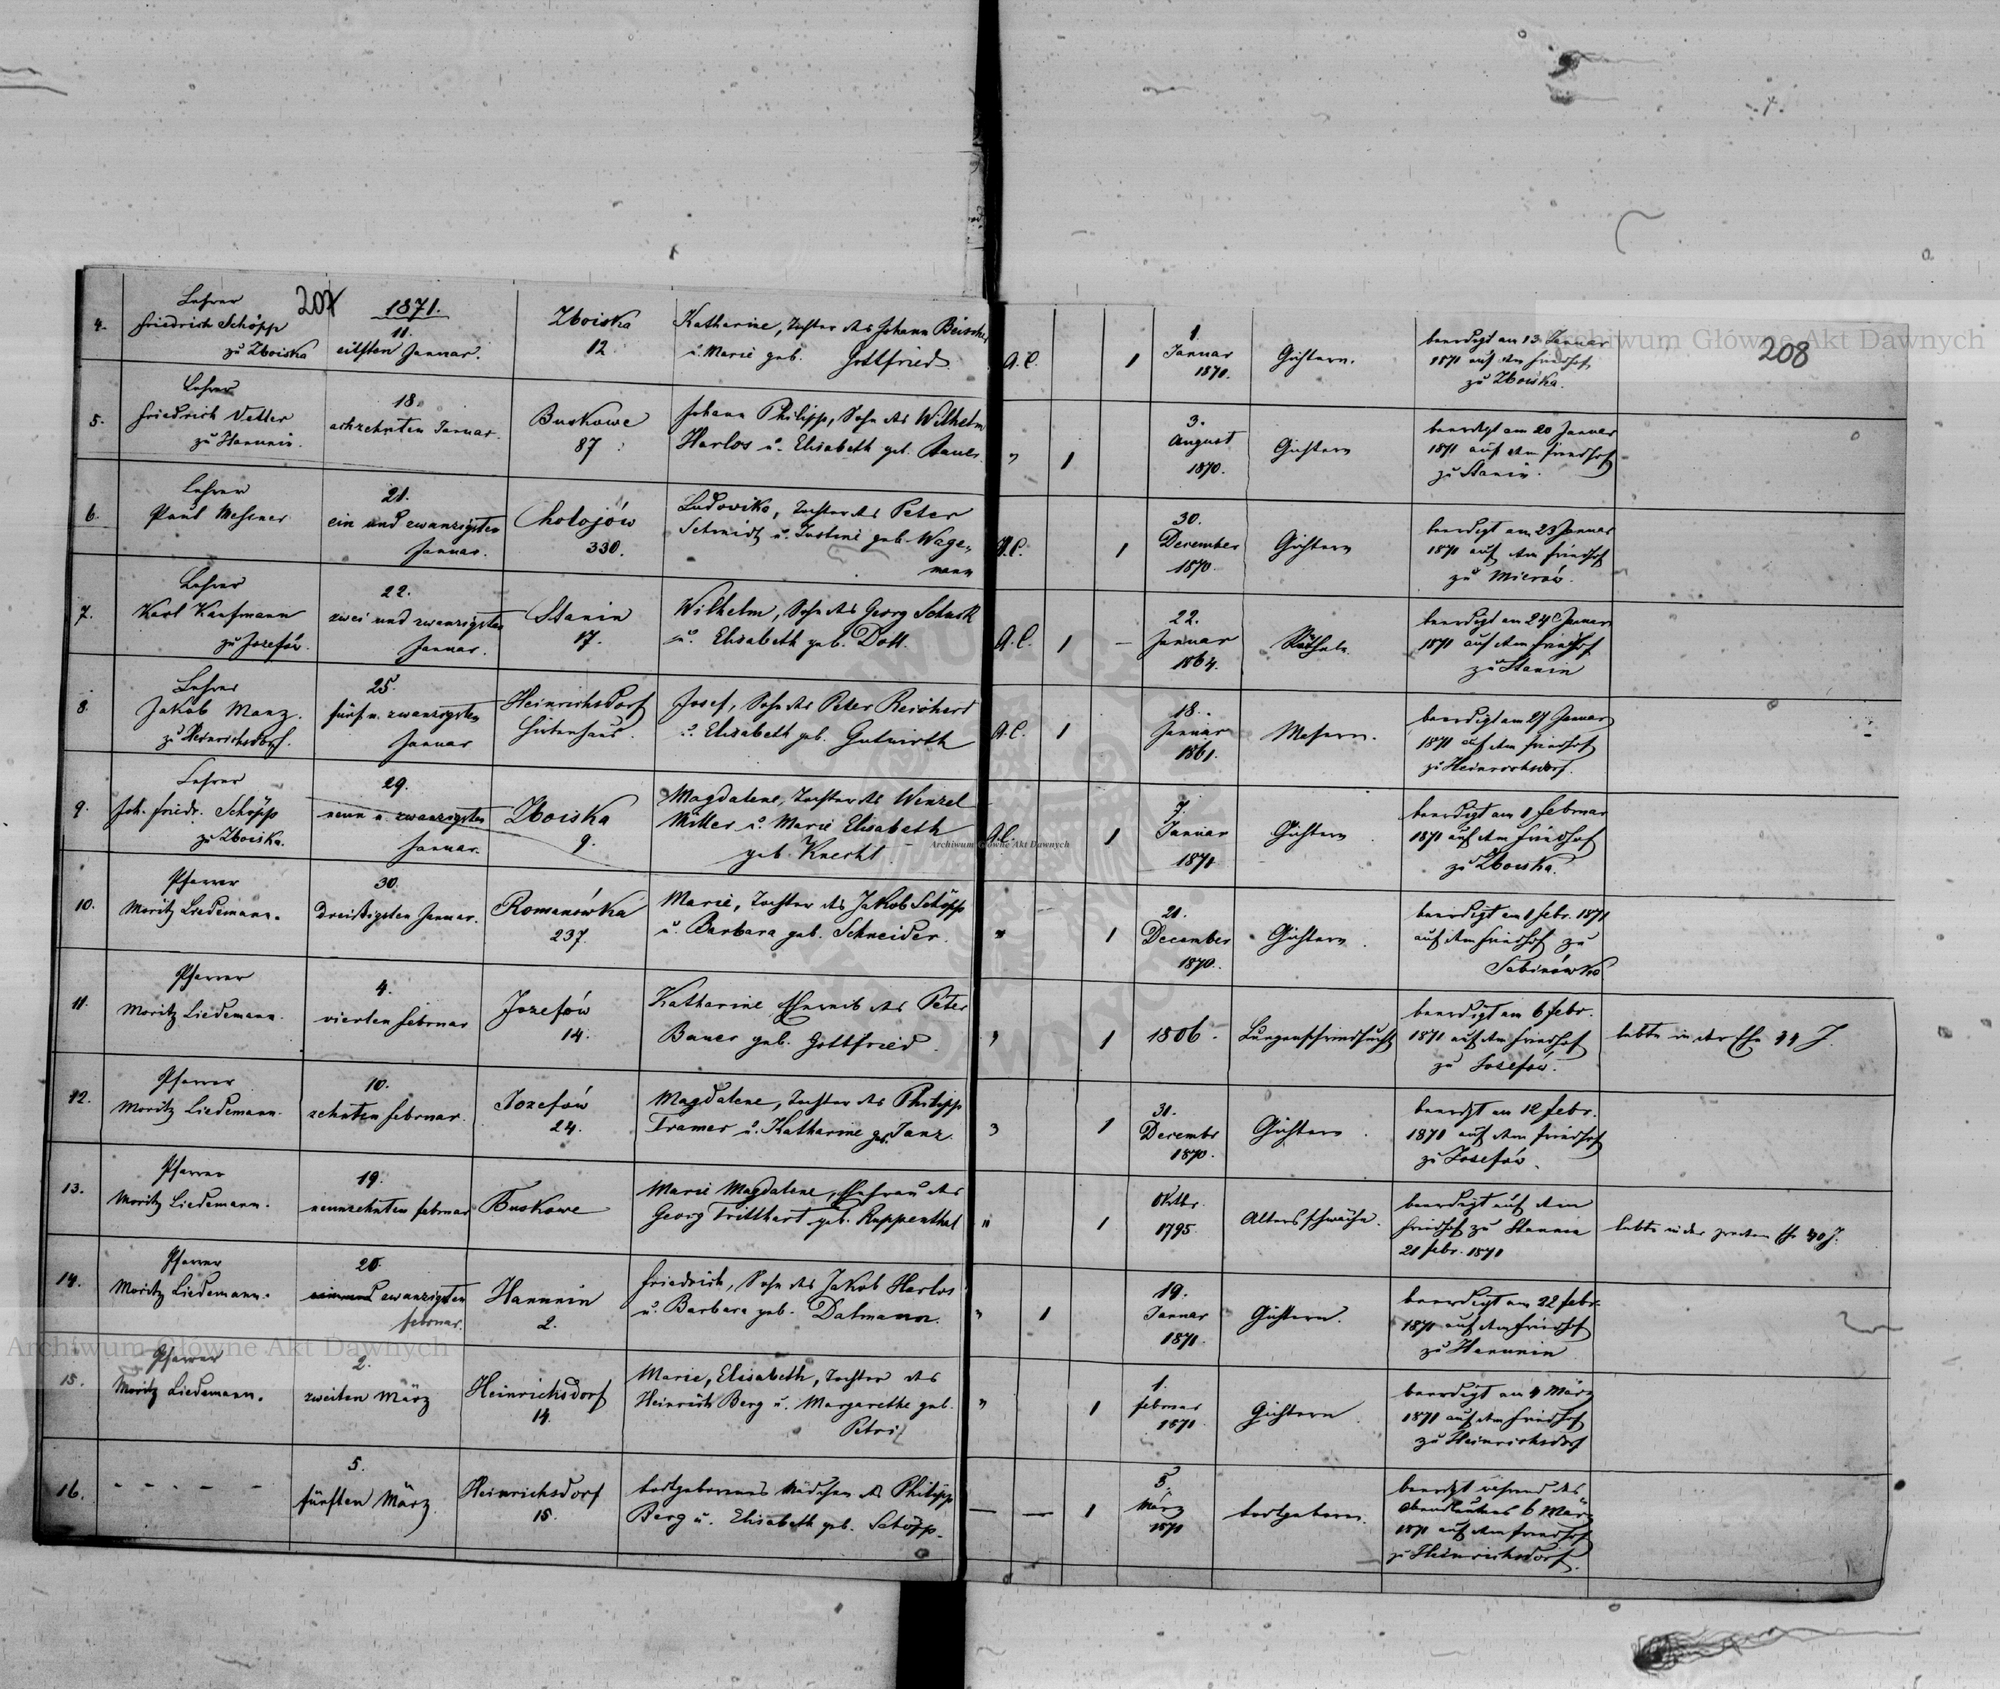 207
208
1871.
4.
Lehrer
Friedrich Schöpp
zu Zboiska
11.
eilften Januar.
Zboiska
12
Katharine, Tochter des Johann
u. Marie geb. Gottfried
A.C.
1
1.
Januar
1870.
Gichtern.
beerdigt am 13. Januar
1871 auf dem Friedhof
zu Zboiska.
5.
Lehrer
Friedrich Vetter
zu Hanunin.
18.
achzehnten Januar.
Buskowe
87
Johann Philipp, Sohn des Wilhelm
Harlos u. Elisabeth geb. Bauer.
"
1
3.
August
1870.
Gichtern
beerdigt am 20 Januar
1871 auf dem Friedhof
zu Stanin.
6.
Lehrer
Paul Messner
21.
ein und zwanzigsten
Januar.
Chołojów
330.
Ludovika, Tochter des Peter
Schmidt u. Justine geb. Wage-
mann
A.C.
1
30.
December
1870.
Gichtern
beerdigt am 23 Januar
1871 auf dem Friedhof
zu Mierów.
7.
Lehrer
Karl Kaufmann
zu Josefów.
22.
zwei und zwanzigsten
Januar.
Stanin
17.
Wilhelm, Sohn des Georg Schuck
u. Elisabeth geb. Doll.
A.C.
1
22.
Januar
1864.
beerdigt am 24 Januar
1871 auf dem Friedhof
zu Stanin
8.
Lehrer
Jakob Manz.
zu Heinrichsdorf.
25.
fünf u. zwanzigsten
Januar
Heinrichsdorf
Hirtenhaus.
Josef, Sohn des Peter Reichert
u. Elisabeth geb. Gutwirth
A.C.
1
18.
Januar
1861.
Masern.
beerdigt am 27 Januar
1871 auf dem Friedhof
zu Heinrichsdorf.
9.
Lehrer
Joh. Friedr. Schöpp
zu Zboiska.
29.
neun u. zwanzigsten
Januar.
Zboiska
9.
Magdalene, Tochter des Wenzel
Müller u. Marie Elisabeth
geb. Knecht.
A.C.
1
7.
Januar
1871
Gichtern
beerdigt am 1 Februar
1871 auf dem Friedhof
zu Zboiska.
10.
Pfarrer
Moritz Liedemann.
30.
Dreißigsten Januar.
Romanówka
237.
Marie, Tochter des Jakob Schöpp
u. Barbara geb. Schneider.
"
1
21.
December
1870.
Gichtern.
beerdigt am 1 Febr. 1871
auf dem Friedhof zu
Sabinówka
11.
Pfarrer
Moritz Liedemann.
4.
vierten Februar
Jozefów
14.
Katharine, Eheweib des Peter
Bauer geb. Gottfried.
"
1
1806.
Lungenschwindsucht
beerdigt am 6 Febr.
1871 auf dem Friedhof
zu Josefów.
lebte in der Ehe 44 J.
12.
Pfarrer
Moritz Liedemann.
10.
zehnten Februar.
Jozefów
24.
Magdalene, Tochter des Philipp
Tramer u. Katharine geb. Janz.
"
1
31.
Decembr
1870.
Gichtern.
beerdigt am 12 Febr.
1871 auf dem Friedhof
zu Josefów.
13.
Pfarrer
Moritz Liedemann.
19.
neunzehnten Februar
Buskowe
Marie Magdalene, Ehefrau des
Georg Tritthart geb. Ruppenthal
"
1
Oktbr.
1795.
Altersschwäche.
beerdigt auf dem
Friedhof zu Stanin
21 Febr. 1871
lebte in der zweiten Ehe 40 J.
14.
Pfarrer
Moritz Liedemann.
20.
zwanzigsten
Februar.
Hanunin
2.
Friedrich, Sohn des Jakob Harlos
u. Barbara geb. Dalmann.
"
1
19.
Januar
1871.
Gichtern.
beerdigt am 22 Febr.
1871 auf dem Friedhof
zu Hanunin
15.
Pfarrer
Moritz Liedemann.
2.
zweiten März
Heinrichsdorf
14.
Marie, Elisabeth, Tochter des
Heinrich Berg u. Margarethe geb.
Petri
"
1
1.
Februar
1871.
Gichtern.
beerdigt am 4 März
1871 auf dem Friedhof
zu Heinrichsdorf
16.
- - - - -
5.
fünften März
Heinrichsdorf
15.
todtgeborenes Mädchen des Philipp
Berg u. Elisabeth geb. Schöpp.
—
—
1
5.
März
1871
todtgeboren.
beerdigt während des
Abendläutens 6 März
1871 auf dem Friedhof
zu Heinrichsdorf.
Archiwum Główne Akt Dawnych
Archiwum Główne Akt Dawnych
Archiwum Główne Akt Dawnych